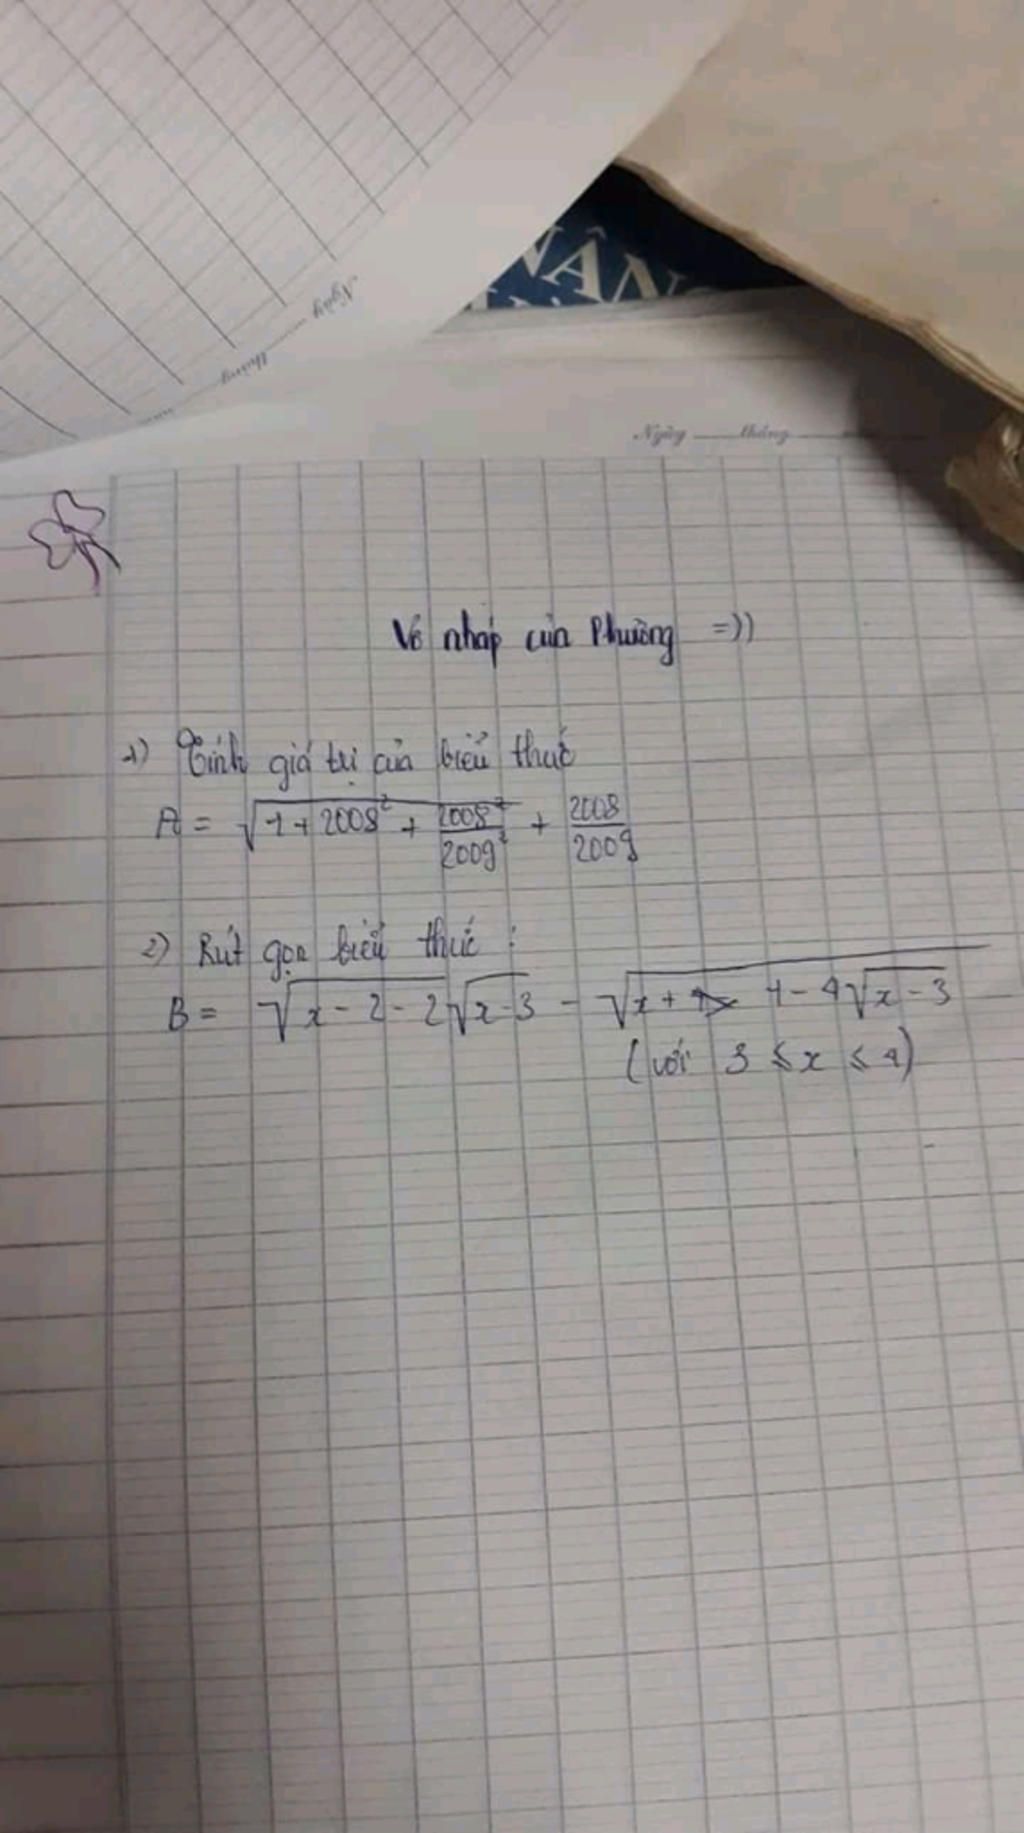 Ngày tháng
NÂN
Ngày tháng
Vở nháp của Phường =))
1) Tính giá trị của biểu thức
A = √(1 + 2008² + 2008²/2009²) + 2008/2009
2) Rút gọn biểu thức :
B = √(x - 2 - 2√(x-3)) - √(x + 1 - 4√(x-3))
(với 3 ≤ x ≤ 4)